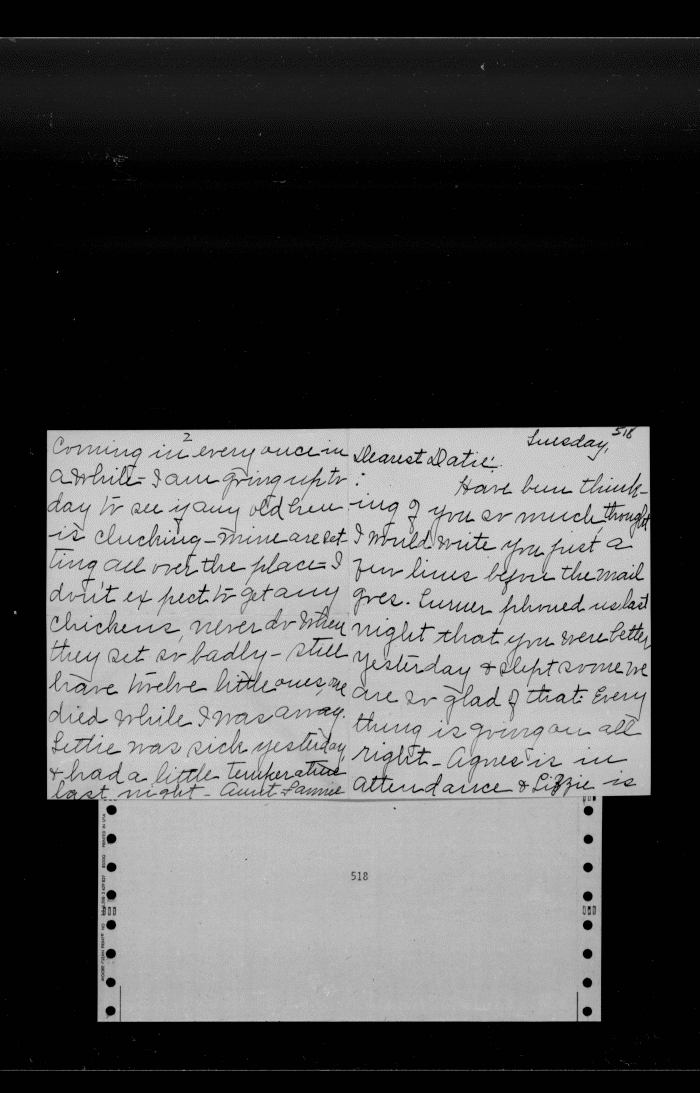 518
Tuesday,
Dearest Datie:
Have been think-
ing of you so much thought
I would write you just a
few lines before the mail
goes. Turner phoned us last
night that you were better
yesterday & slept some we
are so glad of that. Every
thing is going on all
right - Agnes is in
attendance & Lizzie is
2
Coming in every once in
a while - I am going up to
day to see if any old hen
is clucking - mine are set
ting all over the place - I
don't expect to get any
chickens, never do when
they set so badly - still
have twelve little ones, one
died while I was away.
Lettie was sick yesterday
& had a little temperature
last night - Aunt Fannie
518